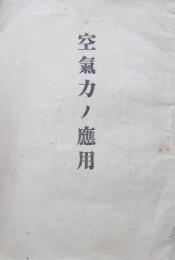 空氣力ノ應用